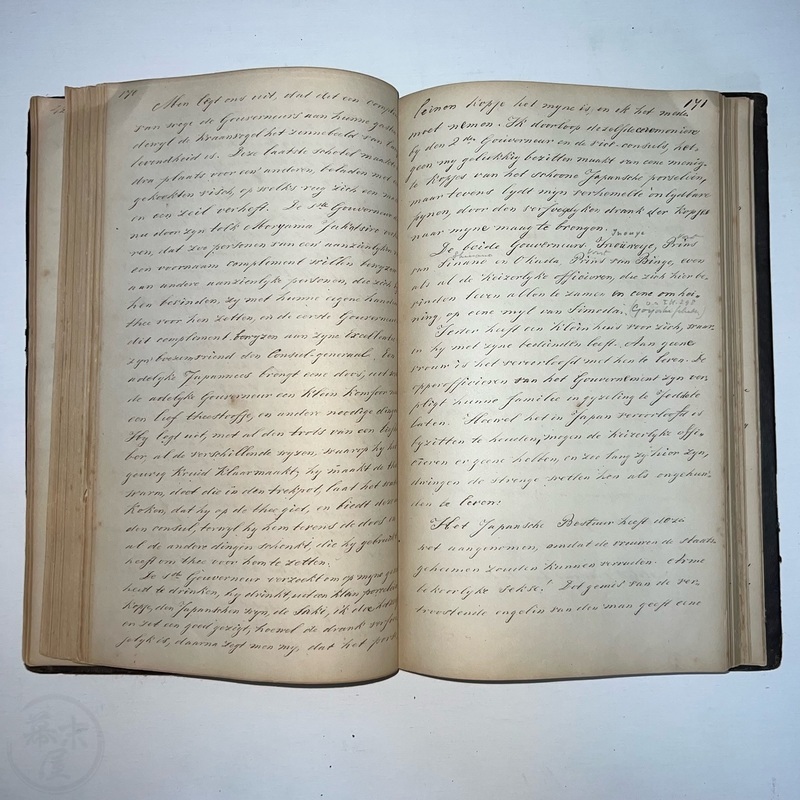 170
Men legt ons uit, dat dit een compl
van wege de Gouverneurs aan hunne gasten
dewyl de kraanvogel het zinnebeeld van lan
levendheid is. Deze laatste schotel maakte
dra plaats voor een' anderen, beladen met
gekookten visch, op welks rug zich een mast
en een zeil verhoft. De 1ste Gouverneur
nu door zyn tolk Moryama
ren, dat zoo personen van een aanzienlyken
een voornaam compliment willen bewyzen
aan andere aanzienlyke personen, die zich by
hen bevinden, zy met hunne eigene handen
thee voor hen zetten, en de eerste Gouverneur
dit compliment bewyzen aan zyne Excellentie
zyn boezemvriend den Consul-generaal. Een
adelyke Japannees brengt eene doos, uit
de adelyke Gouverneur een klein komfoor
een lief theestoffje, en andere noodige dingen
Hy legt uit, met al den trots van een
bor, al de verschillende wyzen, waarop hy het
geurig kruid klaarmaakt; hy maakt de thee
waren, doet die in den trekpot, laat het water
koken, dat hy op de thee giet, en biedt deze
den consul, terwyl hy hem tevens de doos en
al de andere dingen schenkt, die hy gebruikt
heeft om thee voor hem te zetten.
De 1ste Gouverneur verzoekt om op myne gezond
heid te drinken, hy drinkt, uit een klein porselein
kopje, den Japanschen wyn, de Saki, ik doe het
en zet een goed gezigt, hoewel de drank
lyk is, daarna zegt men my, dat het porse
171
leinen kopje het myne is, en ik het mede
moet nemen. Ik doorloop dezelfde ceremonie
by den 2den Gouverneur en de vice-consuls, het
geen my gelukkig bezitter maakt van eene menig-
te kopjes van het schoone Japansche porselein,
maar tevens lydt myn verhemelte ontzettende
pynen, door den verfoeyelyken drank der kopjes
naar myne maag te brengen.
De beide Gouverneurs, Prins
van Sinano en Okuda, Prins van Bingo, even
als al de keizerlyke officieren, die zich hier be-
vinden leven allen te zamen in eene omhei-
ning, op eene myl van Simoda.
Ieder heeft een klein huis voor zich, waar-
in hy met zyne bedienden leeft. Aan geene
vrouw is het veroorloofd met hen te leven. De
opperofficieren van het Gouvernement zyn ver-
pligt hunne familie in gyzeling te Jeddo te
laten. Hoewel het in Japan veroorloofd is
byzitten te houden, mogen de keizerlyke offi-
cieren er geene hebben, en zoo lang zy hier zyn,
dwingen de strenge wetten hen als ongehuw-
den te leven.
Het Japansche Bestuur heeft deze
wet aangenomen, omdat de vrouwen de staats-
geheimen zouden kunnen verraden. Arme
bekoorlyke sekse! Dit gemis van de ver-
troostende engelin van den man geeft eene